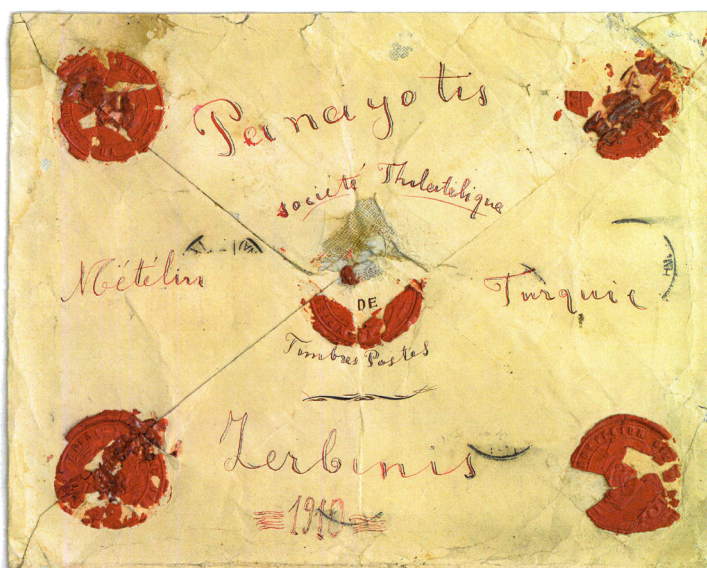 Panayotis
société Philatélique
Mételin Turquie
DE
Timbres Postes
Zerbinis
1910